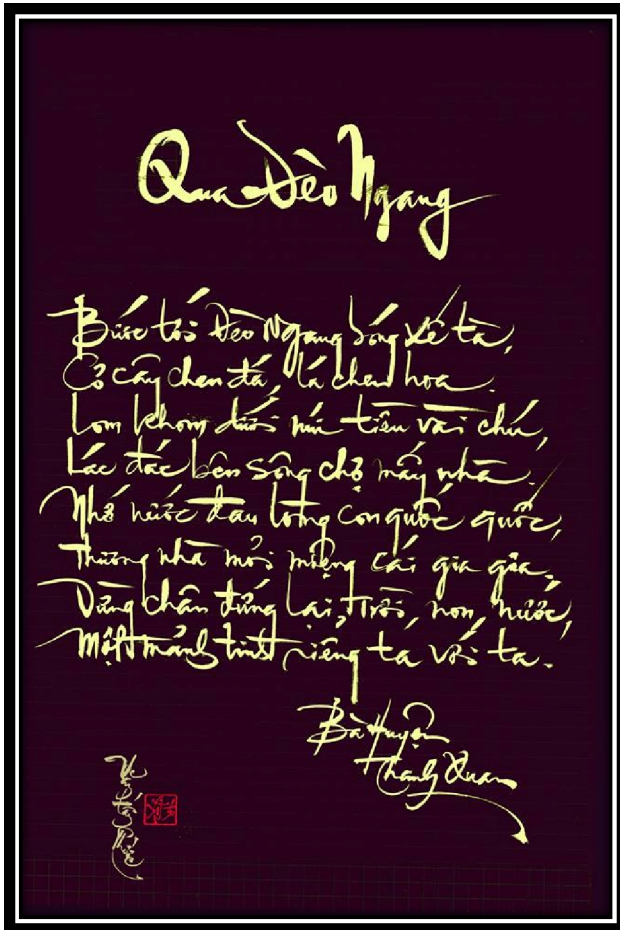 Qua Đèo Ngang
Bước tới Đèo Ngang bóng xế tà,
Cỏ cây chen đá, lá chen hoa.
Lom khom dưới núi tiều vài chú,
Lác đác bên sông chợ mấy nhà.
Nhớ nước đau lòng con quốc quốc,
Thương nhà mỏi miệng cái gia gia.
Dừng chân đứng lại, trời, non, nước,
Một mảnh tình riêng ta với ta.
Bà Huyện
Thanh Quan